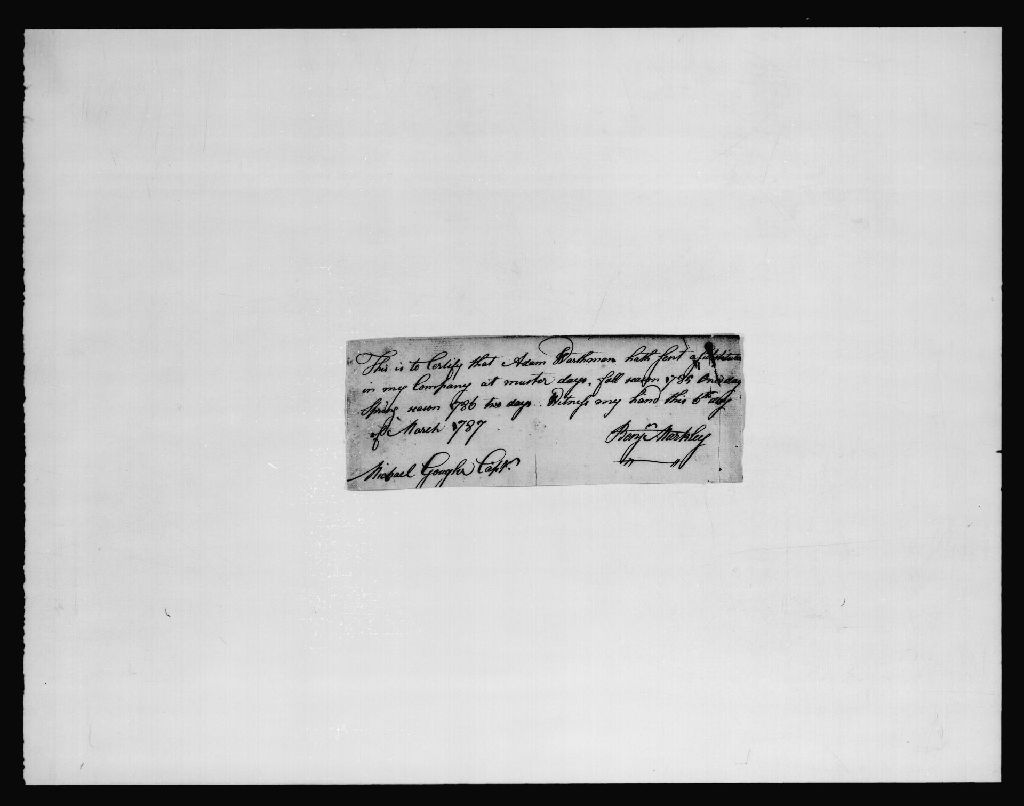 This is to Certify that Adam Warthman hath sent a Substitute
in my Company at muster days, fall season 1785 One day
Spring season 1786 two days. Witness my hand this 6th day
of March 1787
Benjn Markley
Michael Gougler Captn